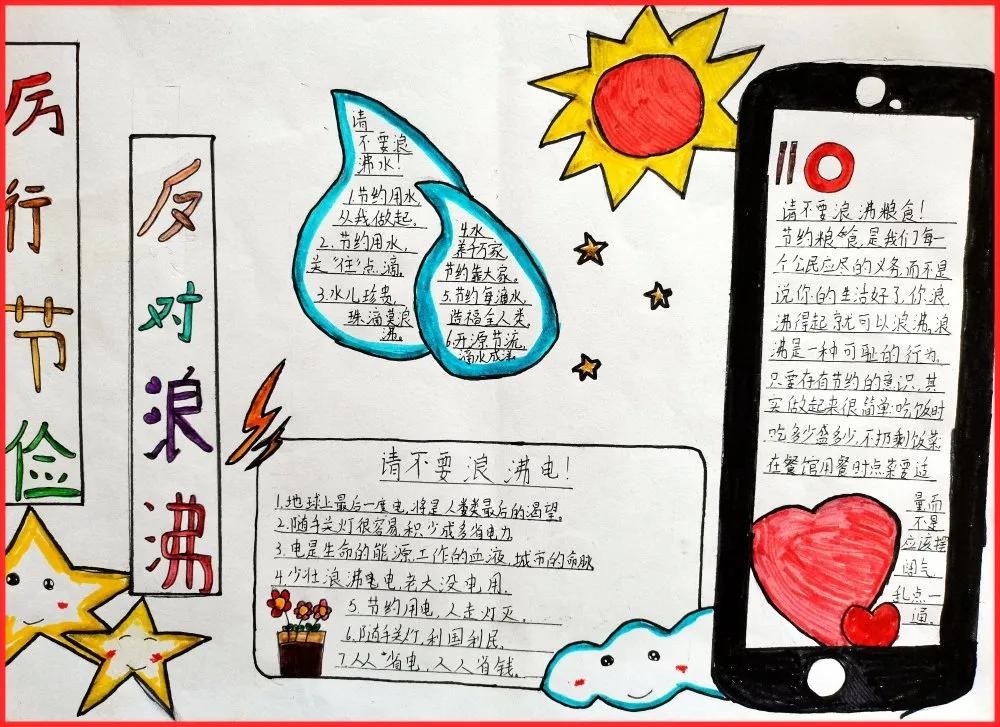 厉行节俭
反对浪沸
请
不要浪
沸水！
1.节约用水，
从我做起。
2.节约用水，
关“往”点滴。
3.水儿珍贵，
珠滴莫浪
沸。
4.水
养千万家，
节约靠大家。
5.节约每滴水，
造福全人类。
6.开源节流，
滴水成
请不要浪沸电！
1.地球上最后一度电，将是人类最后的渴望。
2.随手关灯很容易，积少成多省电力
3.电是生命的能源，工作的血液，城市的命脉
4.少壮浪沸电，老大没电用.
5.节约用电，人走灯灭。
6.随手关灯，利国利民.
7.人人省电，人人省钱.
请不要浪沸粮食！
节约粮食，是我们每一
个公民应尽的义务，而不是
说你的生活好了，你浪
沸得起就可以浪沸，浪
沸是一种可耻的行为.
只要存有节约的意识，其
实做起来很简单:吃饭时
吃多少盛多少，不扔剩饭菜
在餐馆用餐时点菜要适
量而
不是
应该摆
阔气，
乱点一
通。